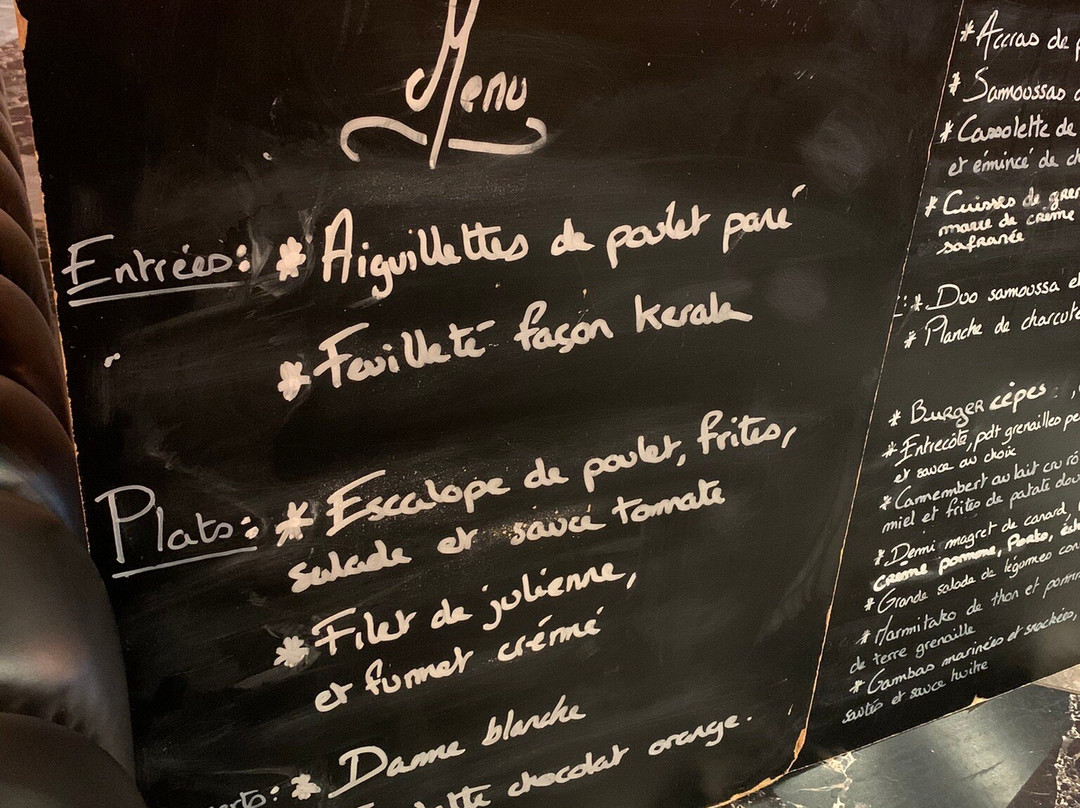 Menu
Entrées: * Aiguillettes de poulet pané
* Feuilleté façon kerala
Plats: * Escalope de poulet, frites,
salade et sauce tomate
* Filet de julienne,
et fumet crémé
* Dame blanche
chocolat orange.
* Accras de
* Samoussas
* Cassolette de
et émincé de
* Cuisses de
marie de crème
safranée
* Duo samoussa
* Planche de
* Burger cèpes
* Entrecôte, pdt grenailles
et sauce au choix
* Camembert au lait cru
miel et frites de patate
* Demi magret de canard,
crème pomme, Porto,
* Grande salade de légumes
* Marmitako de thon et
de terre grenaille
* Gambas marinées et snackées,
sautés et sauce huitre